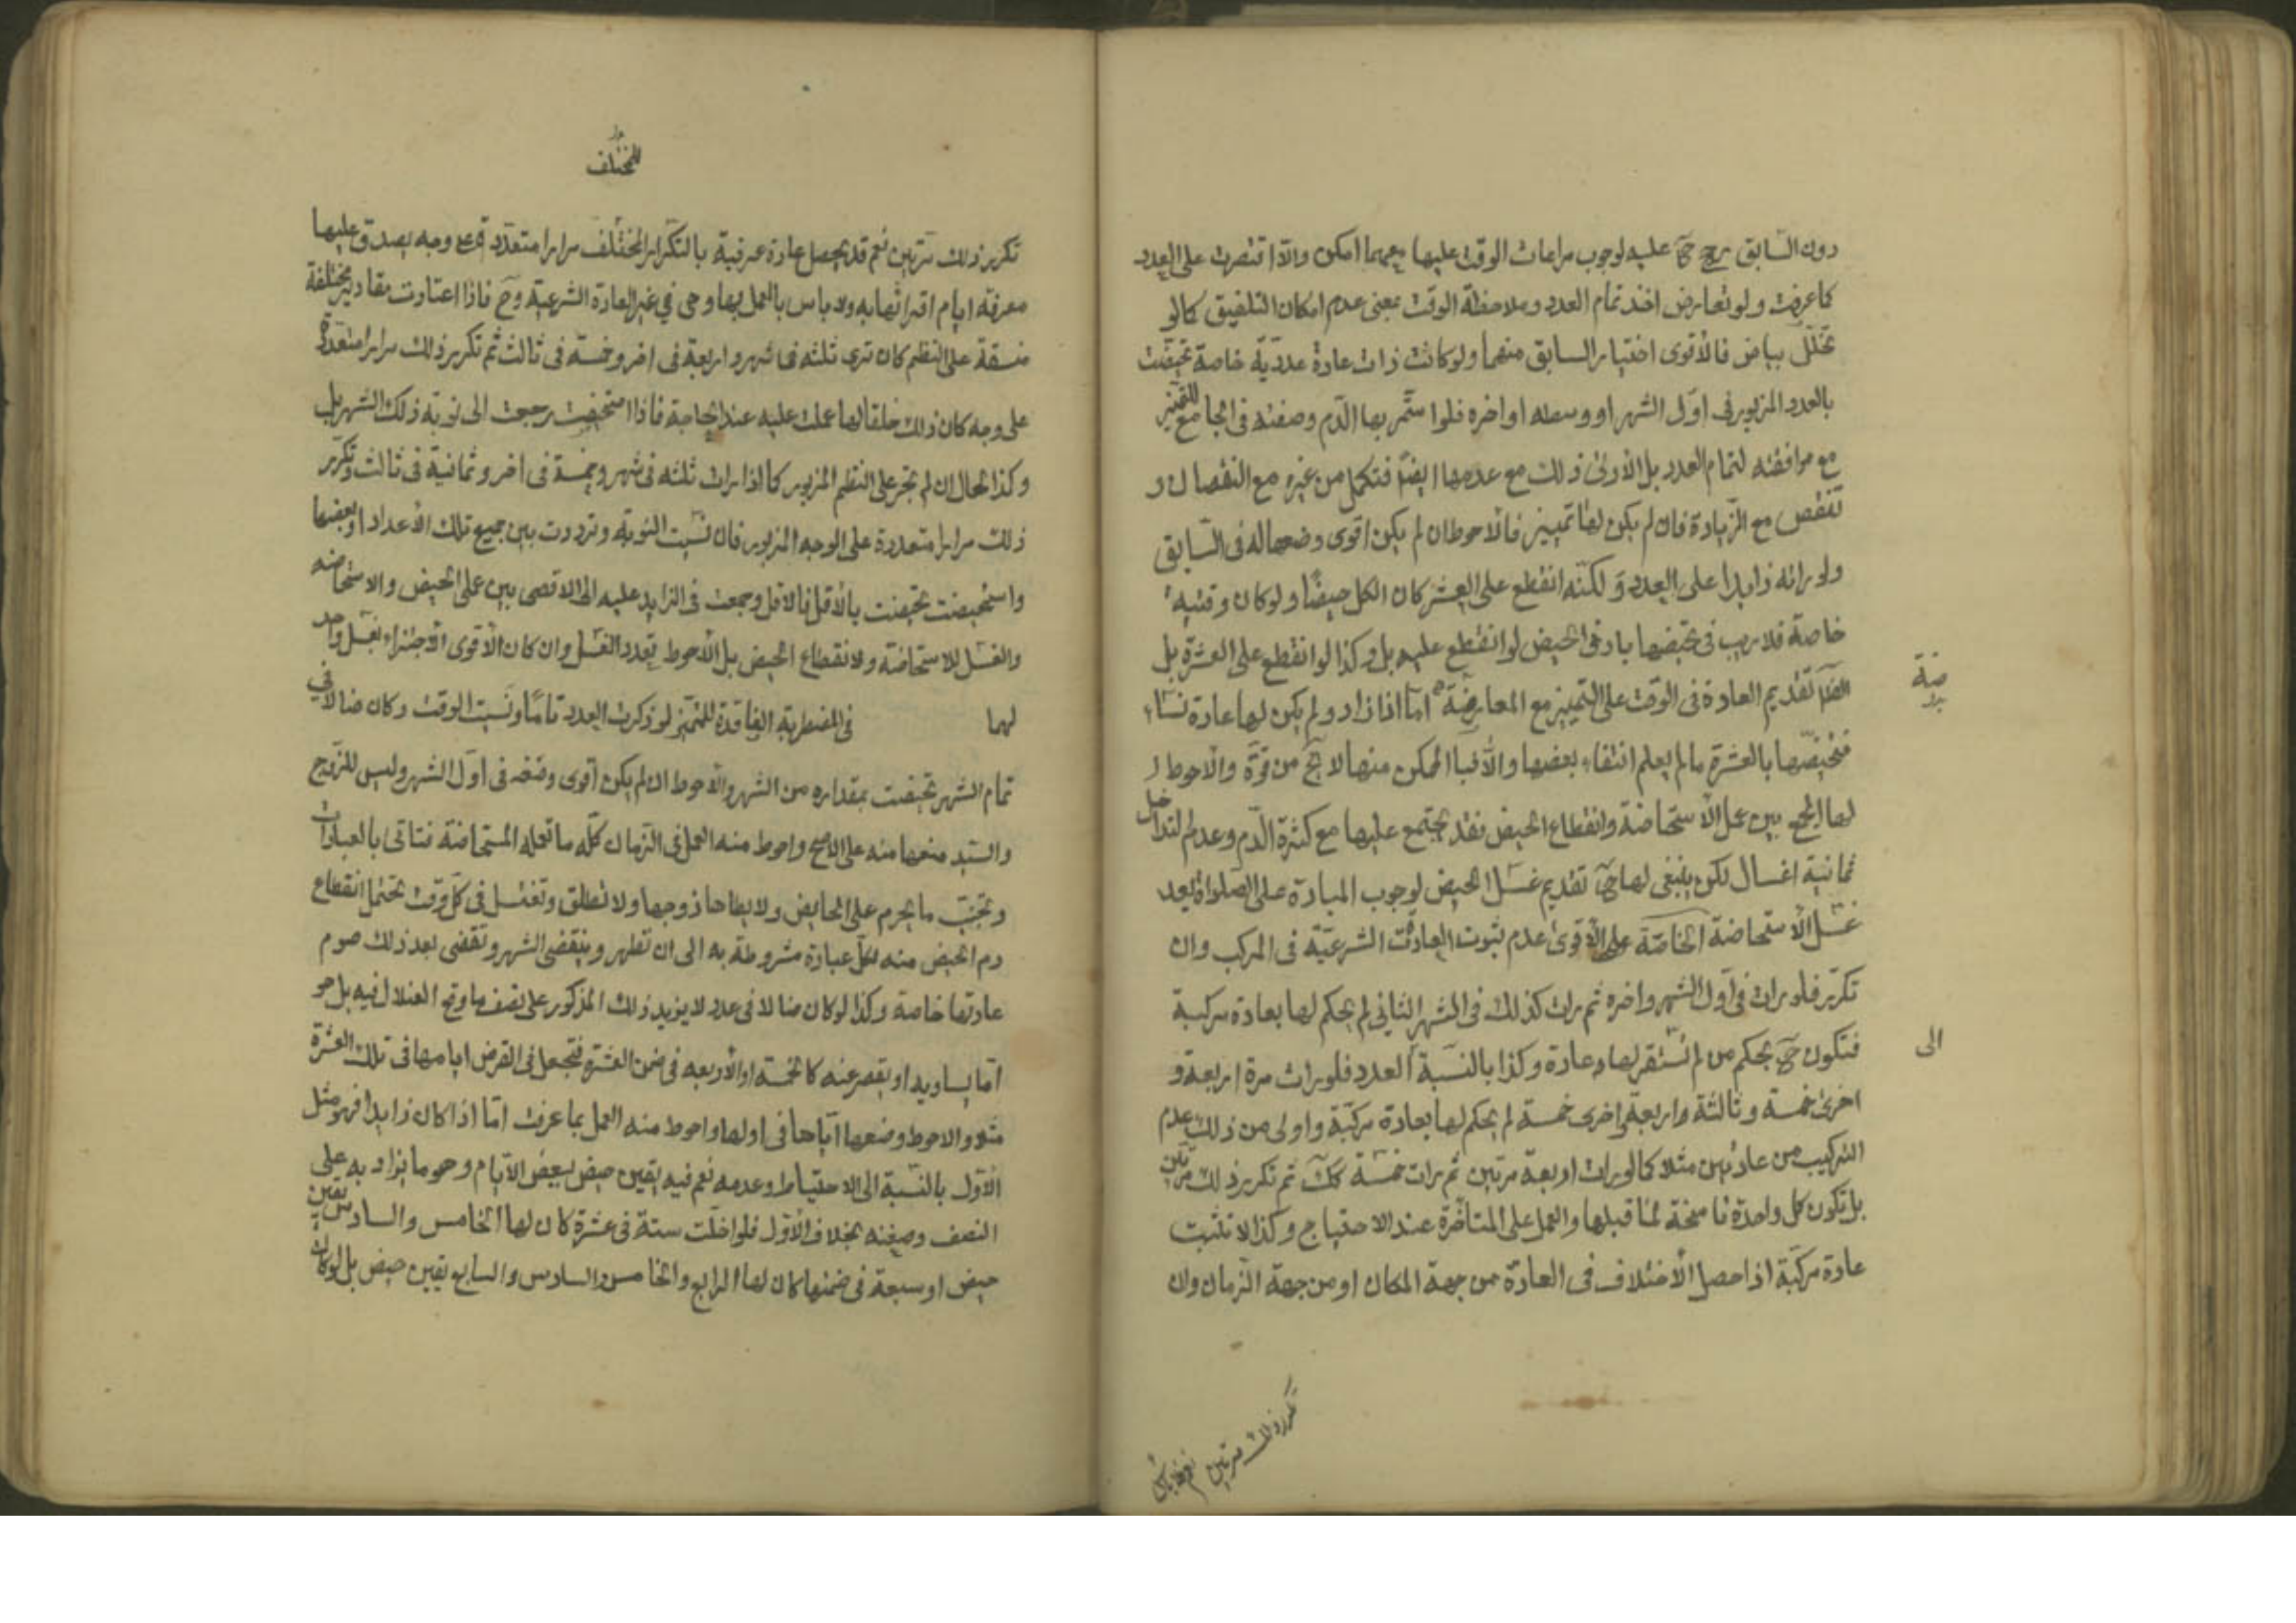 دون السابق رجح ح عليه لوجوب مراعات الوقت عليها مهما امكن والا اقتصرت على العدد
كما عرفت ولو تعارض اخذ تمام العدد وملاحظة الوقت بمعنى عدم امكان التلفيق كما لو
تخلّل بياض فالأقوى اختيار السابق منهما ولو كانت ذات عادة عدديّة خاصة تحيضت
بالعدد المزبور فى اوّل الشهر او وسطه او اخره فلو استمّر بها الدّم وصفته فى الجامع للتميّز
مع موافقته لتمام العدد بل الأولى ذلك مع عدمها ايضًا فتكمل من غيره مع النقصان و
تنقص مع الزّيادة فان لم يكن لها تمييز فالأحوط ان لم يكن اقوى وضعها له فى السّابق
ولو راته زايدا على العدد و لكنّه انقطع على العشر كان الكل حيضًا ولو كان وقتيه
خاصة فلا ريب فى تحيّضها باد فى الحيض لو انقطع عليه بل وكذا لو انقطع على العشرة بل
تقديم العادة فى الوقت على التمييز مع المعارضة امّا اذا زاد ولم يكن لها عادة نساء
ضة
فتحيضها بالعشرة ما لم يعلم انتفاء بعضها والّا فبالممكن منها لا يخ من قوّة والاحوط
لها الجمع بين عمل الاستحاضة وانقطاع الحيض فقد يجتمع عليها مع كثرة الدّم وعدم التداخل
ثمانية اغسال لكن ينبغى لها ح تقديم غسل الحيض لوجوب المبادرة على الصلواة بعد
غسل الاستحاضة الخاصّة على الأقوى عدم ثبوت العادة الشرعيّة فى المركب وان
تكرّر فلو رات فى اوّل الشهر واخره ثم رات كذلك فى الشهر الثانى لم يحكم لها بعادة مركبة
فتكون ح بحكم من لم تستقر لها عادة وكذا بالنسبة العدد فلو رات مرة اربعة و
الى
اخرى خمسة وثالثة واربعة واخرى خمسة لم يحكم لها بعادة مركّبة واولى من ذلك عدم
التركيب من عادتين مثلا كما لو رات اربعة مرتين ثم رات خمسة كك ثم تكرر ذلك مرتين
بل تكون كل واحدة ناسخة لما قبلها والعمل على المتاخّرة عند الاحتياج وكذا لا تثبت
عادة مركّبة اذا حصل الأختلاف فى العادة من جهة المكان او من جهة الزمان وان
تكرر ذلك مرتين
المختلف
تكرر ذلك مرتين نعم قد يحصل عادة عرفية بالتكرار المختلف مرارا متعدّدة على وجه يصدق عليها
معرفة ايام اقرائها به ولا باس بالعمل بها وهى فى غير العادة الشرعيّة وح فاذا اعتادت مقادير مختلفة
متسقة على النظم كان ترى ثلثة فى شهر واربعة فى اخر وخمسة فى ثالث ثم تكرر ذلك مرارا متعدّدة
على وجه كان ذلك خلقا لها عملت عليه عند الحاجة فاذا استحيضت رجعت الى نوبة ذلك الشهر بل
وكذا الحال ان لم تجر على النظم المزبور كما اذا رات ثلثه فى شهر وخمسة فى اخر وثمانية فى ثالث وتكرّر
ذلك مرارا متعددة على الوجه المزبور فان نسيت النوبة وترددت بين جميع تلك الأعداد او بعضها
واستحيضت تحيضت بالأقل فالاقل وجمعت فى الزايد عليه الى الاقصى بين عملى الحيض والاستحاضه
والغسل للاستحاضة ولانقطاع الحيض بل الأحوط تعدد الغسل وان كان الأقوى الأجتزاء بغسل واحد
لهما فى المضطربة الفاقدة للتميّز لو ذكرت العدد تامًا ونسيت الوقت وكان ضالا فى
تمام الشهر تحيضت بمقداره من الشهر والاحوط ان لم يكن اقوى وضعه فى اوّل الشهر وليس للزوج
والسّيد منعها منه على الاصح واحوط منه العمل فى الزمان كلّه ما تعمله المستحاضة فتاتى بالعبادات
وتجنب ما يحرم على الحايض ولا يطاها زوجها ولا تطلق وتغتسل فى كلّ وقت تحتمل انقطاع
دم الحيض منه لكلّ عبادة مشروطة به الى ان تطهر وينقضى الشهر وتقضى بعد ذلك صوم
عادتها خاصة وكذا لو كان ضالا فى عدد لا يزيد ذلك المذكور على نصف ما وقع الضلال فيه بل هو
امّا يساويه او يقصر عنه كالخمسة او الأربعه فى ضمن العشرة فتجعل فى الفرض ايامها فى تلك العشرة
مثلا والاحوط وضعها ايّاها فى اولها واحوط منه العمل بما عرفت امّا اذا كان زايدا فهو مثل
الأوّل بالنسبة الى الاحتياط وعدمه نعم فيه يقين حيض ببعض الايّام وهو ما يزاد به على
النصف وضعفه بخلاف الأوّل فلو اضلّت ستة فى عشرة كان لها الخامس والسادس يقين
حيض او سبعة فى ضمنها كان لها الرابع والخامس والسادس والسابع يقين حيض بل لو كان